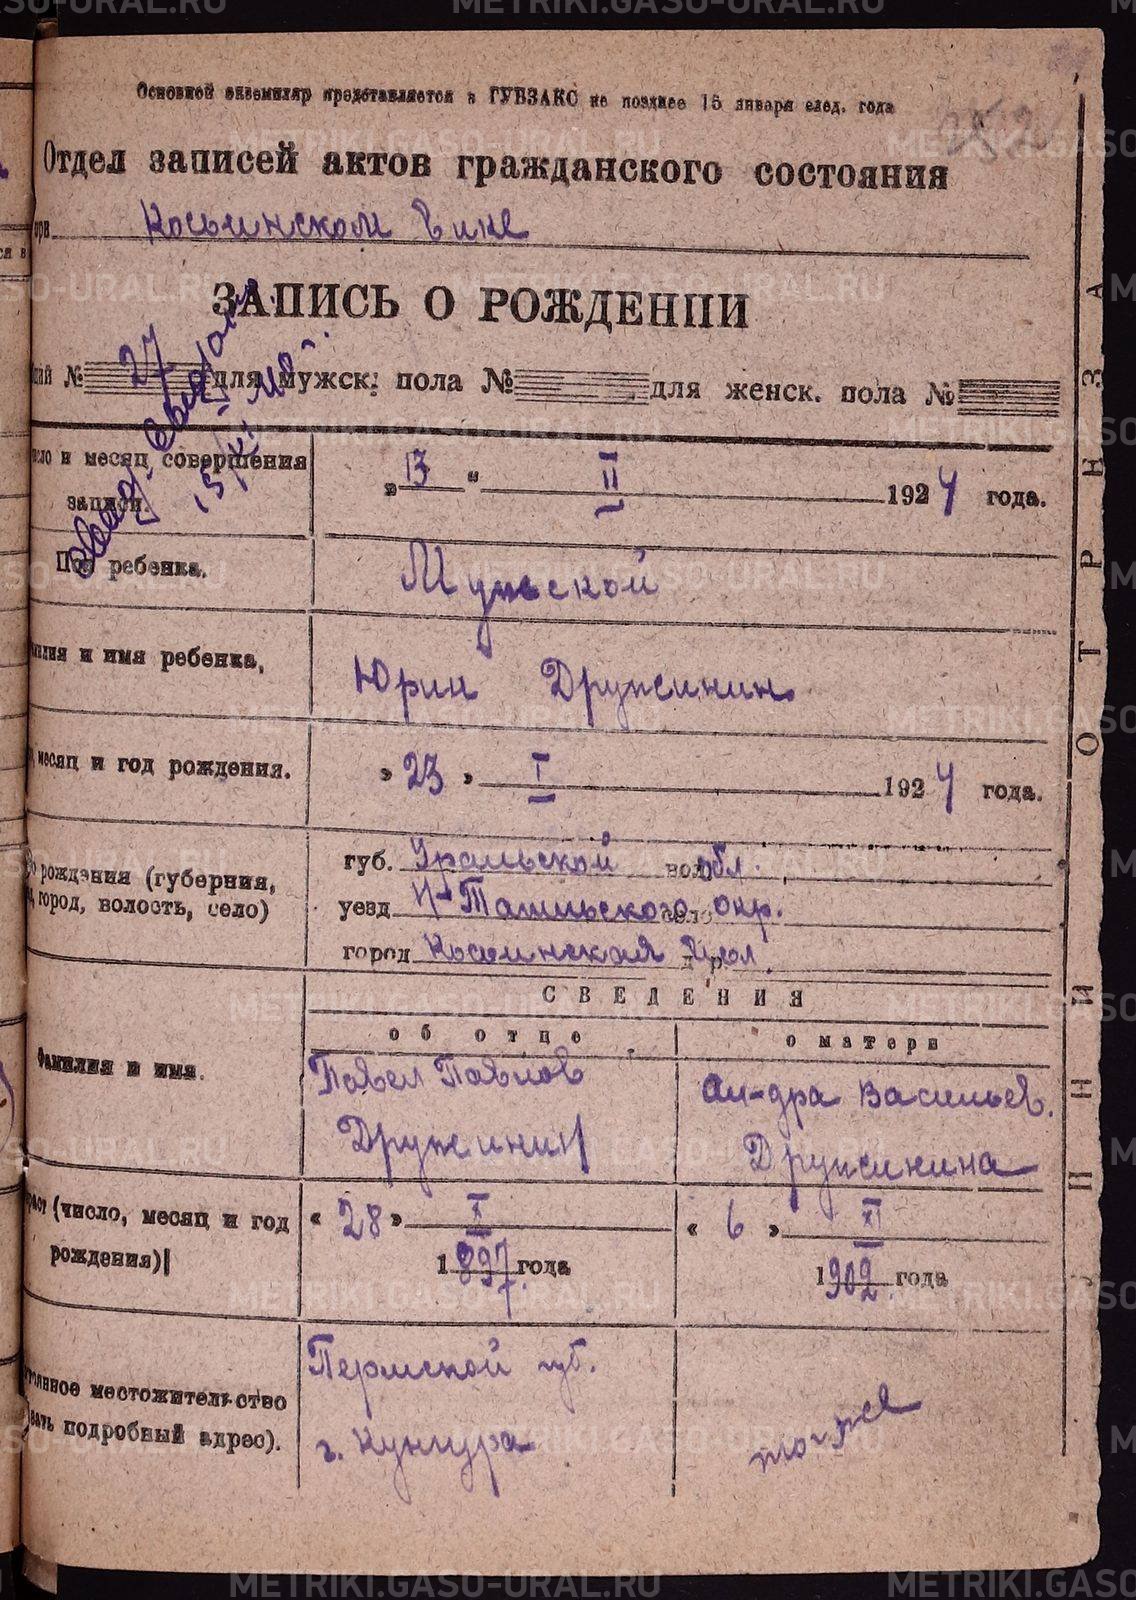 Основной экземпляр представляется в ГУБЗАКС не позднее 15 января след. года
Отдел записей актов гражданского состояния
Косьинском Вике
ЗАПИСЬ О РОЖДЕНИИ
№ 27 для мужск. пола № для женск. пола №
число и месяц совершения записи. „13“ II 1924 года.
Пол ребенка. Мужской
и имя ребенка, Юрий Дружинин
месяц и год рождения. „23„ I 1924 года.
рождения (губерния, город, волость, село)
губ. Уральской вол обл.
уезд Н-Тагильского село окр.
город Косьинская
СВЕДЕНИЯ
об отце
о матери
Фамилия и имя.
Павел Павлов
Дружинин
Ал-дра Васильев.
Дружинина
(число, месяц и год рождения)
„28„ X 1897 года
„6„ XI 1902 года
местожительство
подробный адрес).
Пермской губ.
г. Кунгура
то-же
ЛИНИЯ ОТРЕЗА
METRIKI.GASO-URAL.RU